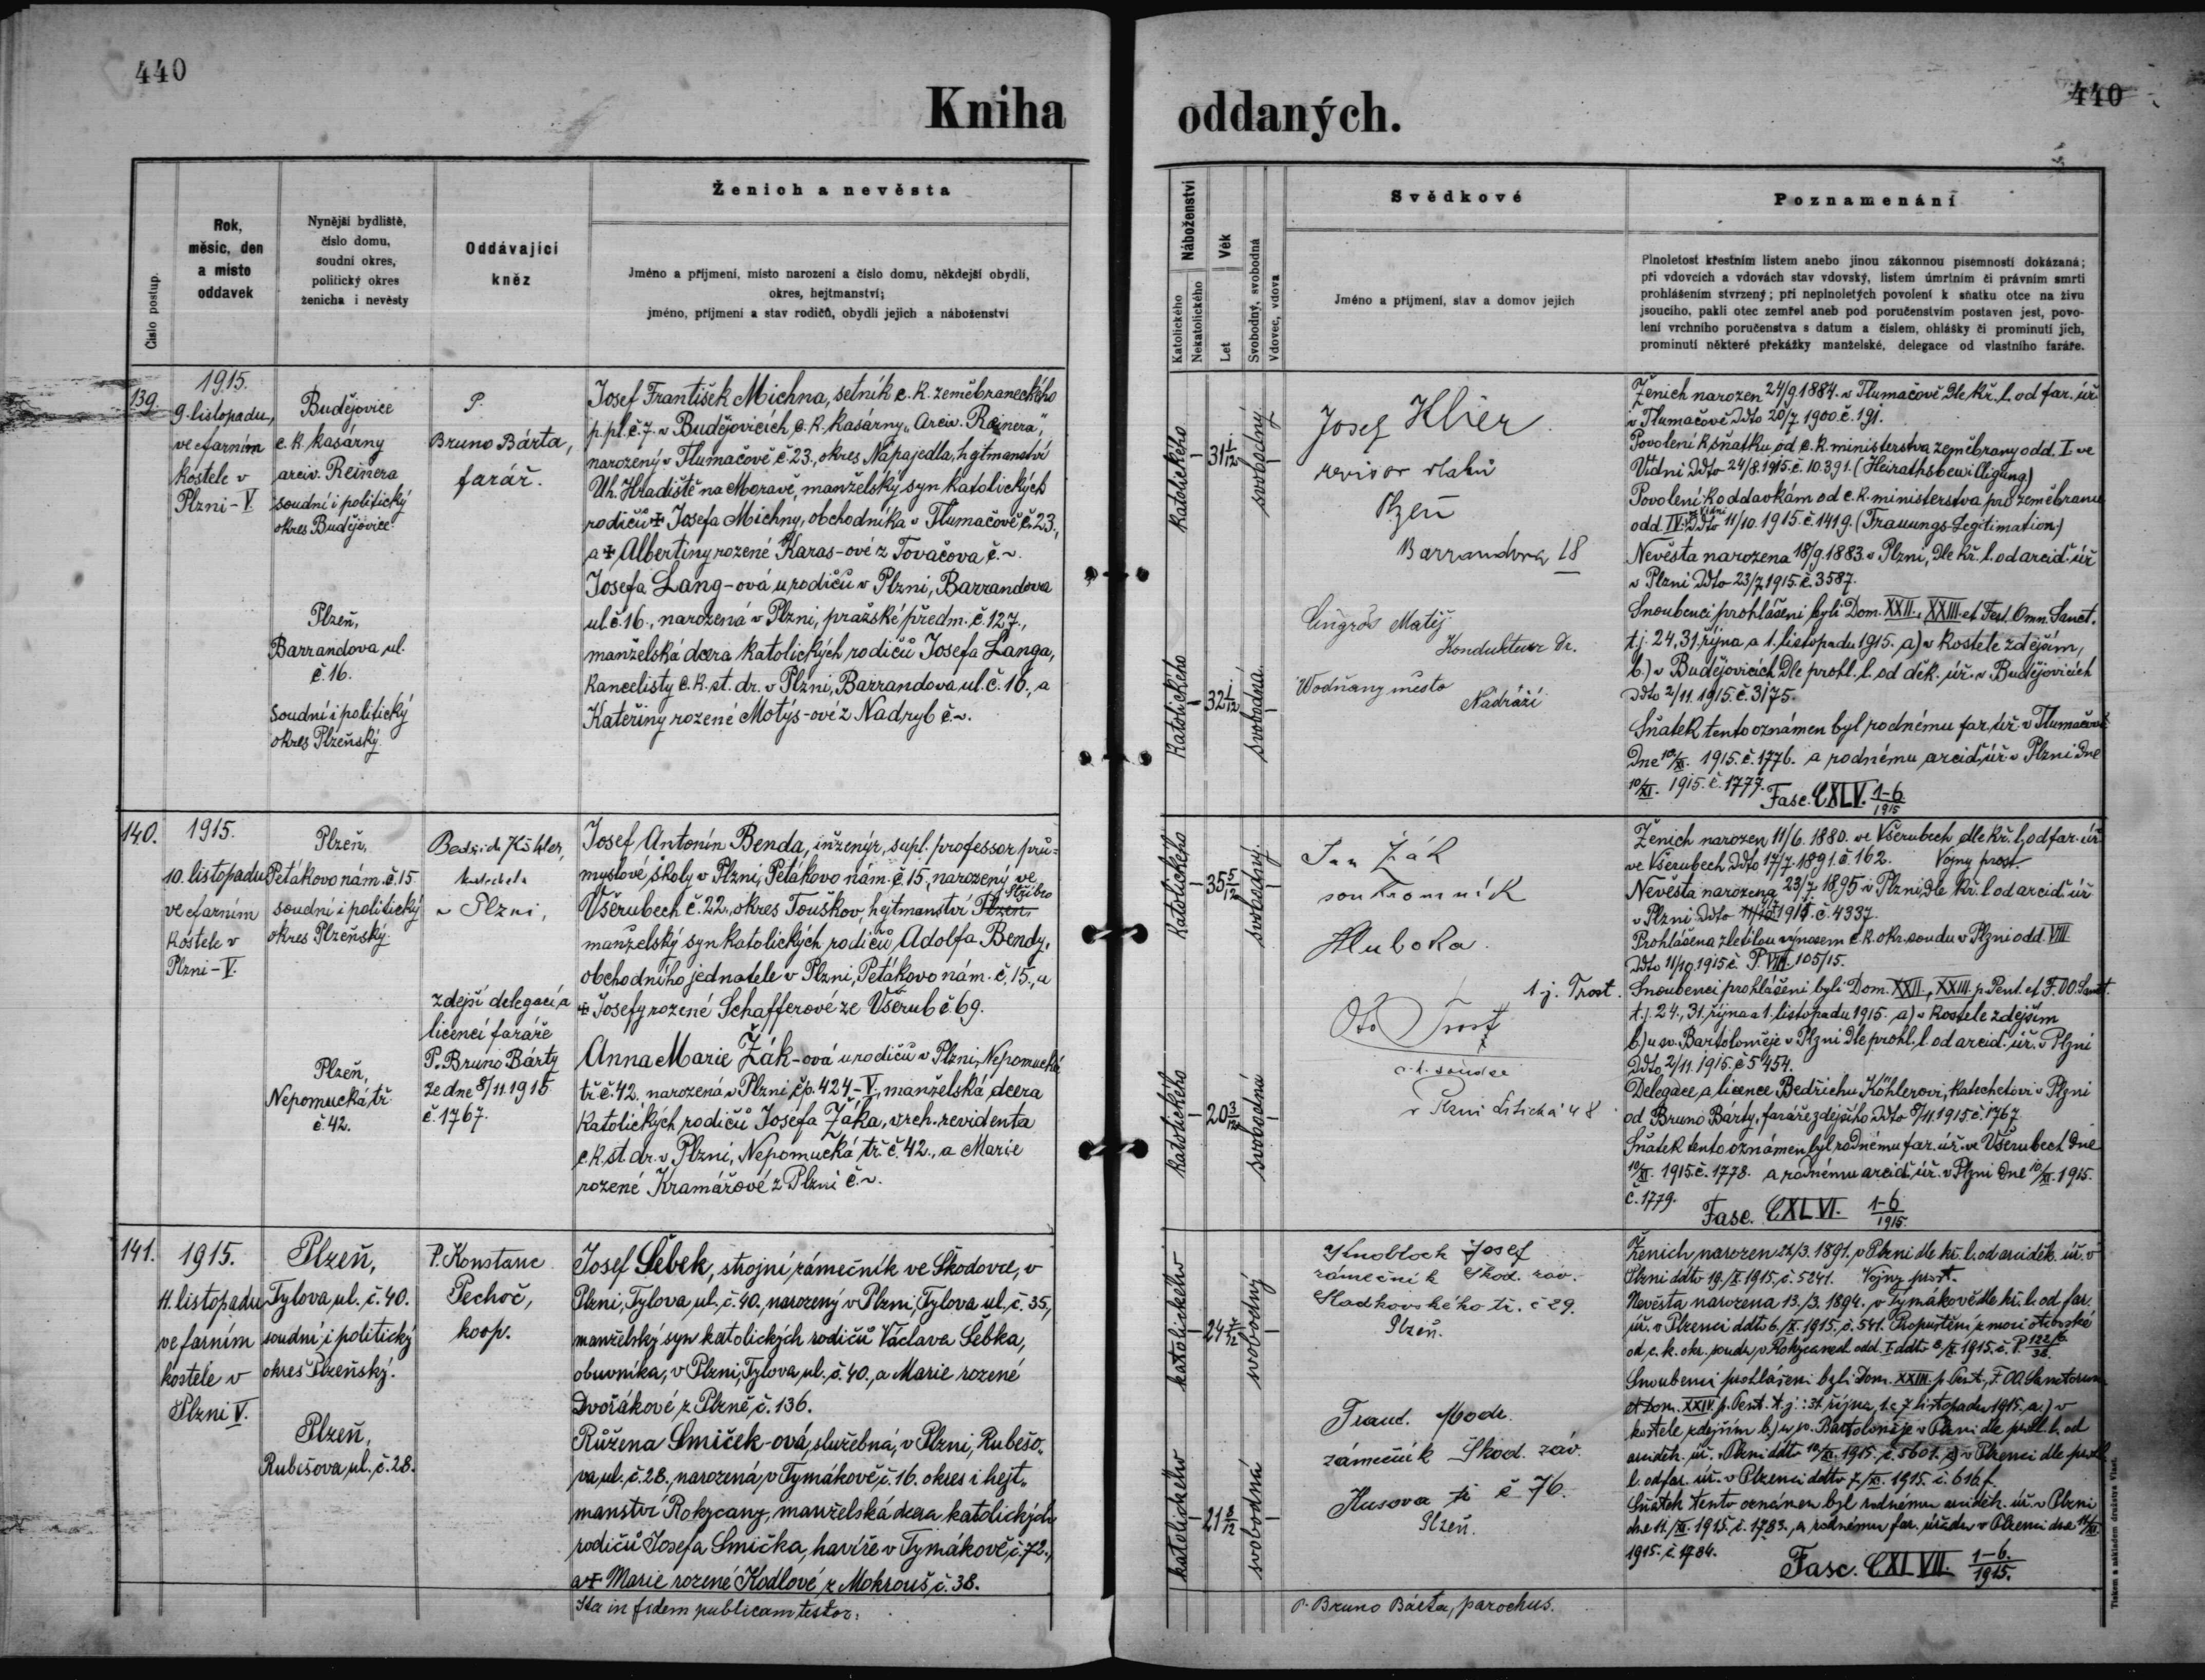 440
Kniha
Číslo postup.
Rok,
měsíc, den
a místo
oddavek
Nynější bydliště,
číslo domu,
soudní okres,
politický okres
ženicha i nevěsty
Oddávající
kněz
Ženich a nevěsta
Jméno a příjmení, místo narození a číslo domu, někdejší obydlí,
okres, hejtmanství;
jméno, příjmení a stav rodičů, obydlí jejich a náboženství
139.
1915.
9. listopadu,
ve farním
kostele v
Plzni-V.
Budějovice
c. k. kasárny
arciv. Reinera
soudní i politický
okres Budějovice.
Plzeň,
Barrandova ul.
č. 16.
Soudní i politický
okres Plzeňský.
P.
Bruno Bárta,
farář.
Josef František Michna, setník c. k. zeměbraneckého
p. pl. č. 7. v Budějovicích, c. k. kasárny „Arciv. Rainera",
narozený v Tlumačově č. 23., okres Napajedla, hejtmanství
Uh. Hradiště na Moravě, manželský syn katolických
rodičů ✝ Josefa Michny, obchodníka v Tlumačově č. 23.,
a ✝ Albertiny rozené Karas-ové z Tovačova č. ~.
Josefa Lang-ová u rodičů v Plzni, Barrandova
ul. č. 16., narozená v Plzni, pražské předm. č. 127.,
manželská dcera katolických rodičů Josefa Langa,
kancelisty c. k. st. dr. v Plzni, Barrandova ul. č. 16., a
Kateřiny rozené Motýs-ové z Nadryb č. ~.
140.
1915.
10. listopadu
ve farním
kostele v
Plzni-V.
Plzeň,
Petákovo nám. č. 15.
soudní i politický
okres Plzeňský.
Plzeň,
Nepomucká tř.
č. 42.
Bedřich Köhler,
katecheta
v Plzni,
zdejší delegací a
licencí faráře
P. Bruno Bárty
ze dne 8/11. 1915
č. 1767.
Josef Antonín Benda, inženýr, supl. professor prů-
myslové školy v Plzni, Petákovo nám. č. 15., narozený ve
Všerubech č. 22., okres Touškov, hejtmanství Plzeň, Stříbro
manželský syn katolických rodičů Adolfa Bendy,
obchodního jednatele v Plzni, Petákovo nám. č. 15., a
✝ Josefy rozené Schafferové ze Všerub č. 69.
Anna Marie Žák-ová u rodičů v Plzni, Nepomucká
tř. č. 42., narozená v Plzni čp. 424-V., manželská dcera
katolických rodičů Josefa Žáka, vrch. revidenta
c. k. st. dr. v Plzni, Nepomucká tř. č. 42., a Marie
rozené Kramářové z Plzni č. ~.
141.
1915.
11. listopadu
ve farním
kostele v
Plzni V.
Plzeň,
Tylova ul. č. 40.
soudní i politický
okres Plzeňský.
Plzeň,
Rubešova ul. č. 28.
P. Konstanc
Pechoč,
koop.
Josef Šebek, strojní zámečník ve Škodovce, v
Plzni, Tylova ul. č. 40. narozený v Plzni, Tylova ul. č. 35,
manželský syn katolických rodičů Václava Šebka,
obuvníka, v Plzni, Tylova ul. č. 40., a Marie rozené
Dvořákové z Plzně č. 136.
Růžena Smiček-ová, služebná, v Plzni, Rubešo-
va ul. č. 28. narozená v Tymákově č. 16. okres i hejt-
manství Rokycany, manželská dcera katolických
rodičů Josefa Smička, havíře v Tymákově, č. 72.,
a ✝ Marie rozené Kodlové z Mokrouš č. 38.
Ita in fidem publicam testor:
440
oddaných.
Náboženství
Katolického
Nekatolického
Věk
Let
Svobodný, svobodná
Vdovec, vdova
Svědkové
Jméno a příjmení, stav a domov jejich
Poznamenání
Plnoletost křestním listem anebo jinou zákonnou písemností dokázaná;
při vdovcích a vdovách stav vdovský, listem úmrtním či právním smrti
prohlášením stvrzený; při neplnoletých povolení k sňatku otce na živu
jsoucího, pakli otec zemřel aneb pod poručenstvím postaven jest, povo-
lení vrchního poručenstva s datum a číslem, ohlášky či prominutí jich,
prominutí některé překážky manželské, delegace od vlastního faráře.
katolického
31 1/12
svobodný
katolického
32 1/12
svobodná
Josef Klier
revisor vlaků
Plzeň
Barrandova 18
Matěj
Kondukteur dr.
Wodňany město
Nádraží
Ženich narozen 24/9. 1884. v Tlumačově dle kř. l. od far. úř.
v Tlumačově ddto 20/7. 1900. č. 191.
Povolení k sňatku od c. k. ministerstva zeměbrany odd. I ve
Vídni ddto 24/8. 1915. č. 10.391. (Heirathsbewilligung.)
Povolení k oddavkám od c. k. ministerstva pro zeměbranu
odd. IV. Vídni ddto 11/10. 1915. č. 1419. (Trauungs-Legitimation.)
Nevěsta narozena 18/9. 1883. v Plzni, dle kř. l. od arcid. úř.
v Plzni ddto 23/7. 1915. č. 3587.
Snoubenci prohlášeni byli Dom. XXII., XXIII. et Fest. Omn. Sanct.
t. j. 24., 31. října a 1. listopadu 1915. a) v kostele zdejším,
b) v Budějovicích dle prohl. l. od děk. úř. v Budějovicích
ddto 2/11. 1915. č. 3175.
Sňatek tento oznámen byl rodnému far. úř. v Tlumačově
dne 10/XI. 1915. č. 1776. a rodnému arcid. úř. v Plzni dne
10/XI. 1915. č. 1777.
Fasc. CXLV. 1-6/1915
katolického
35 5/12
svobodný.
katolického
20 3/12
svobodná
Jan Žák
soukromník
Hluboka.
t. j. Trost.
Oto Trost
c. k. soudce
v Plzni Litická 48
Ženich narozen 11/6. 1880. ve Všerubech, dle kř. l. od far. úř.
ve Všerubech ddto 17/7. 1891. č. 162. Vojny prost.
Nevěsta narozena 23/7. 1895 v Plzni, dle kř. l. od arcid. úř.
v Plzni ddto 1915. č. 4337.
Prohlášena zletilou výnosem c. k. okr. soudu v Plzni odd. VIII
ddto 11/10. 1915 č. P. VIII. 105/15.
Snoubenci prohlášeni byli Dom. XXII., XXIII. p. Pent. et F. OO. Sanct.
t. j. 24., 31. října a 1. listopadu 1915. a) v kostele zdejším
b) u sv. Bartoloměje v Plzni dle prohl. l. od arcid. úř. v Plzni
ddto 2/11. 1915. č. 5454.
Delegace a licence Bedřichu Köhlerovi, katechetovi v Plzni
od Bruno Bárty, faráře zdejšího ddto 8/11. 1915. č. 1767.
Sňatek tento oznámen byl rodnému far. úř. ve Všerubech dne
10/XI. 1915. č. 1778. a rodnému arcid. úř. v Plzni dne 10/XI. 1915.
č. 1779.
Fasc. CXLVI. 1-6/1915.
katolického
24 7/12
svobodný
katolického
21 8/12
svobodná
Knobloch Josef
zámečník Škod. zav.
Sladkovského tř. č 29.
Plzeň.
Frant.
zámečník Škod. záv.
Husova tř č 76.
Plzeň.
Ženich narozen 22/3. 1891. v Plzni dle kř. l. od arciděk. úř. v
Plzni ddto 19./X. 1915, č. 5241. Vojny prost.
Nevěsta narozena 13./3. 1894. v Tymákově dle kř. l. od far.
úř. v Plzenci ddto 6./X. 1915. č. 541. Propuštěna z moci otcovské
od c. k. okr. soudu v Rokycanech odd. I ddto 1915. č. P. 122/6
Snoubenci prohlášeni byli Dom. XXIII. p. Pent., F. OO. Sanctorum
et Dom. XXIV. p. Pent. t. j.: 31. října, 1. a 7. listopadu 1915. a.) v
kostele zdejším b.) u sv. Bartoloměje v Plzni dle prohl. l. od
arciděk. úř. v Plzni ddto 10/XI. 1915. č. 5601. c) v Plzenci dle prohl.
l. od far. úř. v Plzenci ddto 7./XI. 1915. č. 616.
Sňatek tento oznámen byl rodnému arciděk. úř. v Plzni
dne 11./XI. 1915. č. 1783., a rodnému far. úřadu v Plzenci dne 11/XI
1915. č. 1784.
Fasc. CXLVII. 1-6./1915.
P. Bruno Bárta, parochus.